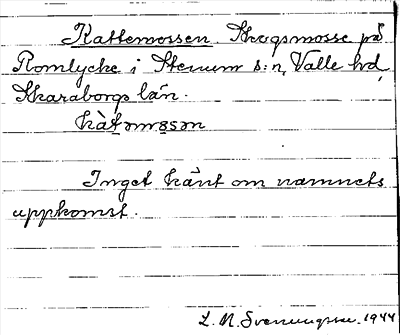 Kattemossen. Skogsmosse på
Romlycke i Stenum s:n, Valle hd,
Skaraborgs län.
kàtəmɷsən
Inget känt om namnets
uppkomst.
1944